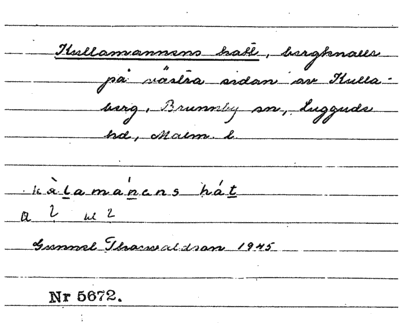 Kullamannens hatt, bergknalle
på västra sidan av Kulla-
berg, Brunnby sn, Luggude
hd, Malm. l.
kàlamánens hát
Gunnel Thorwaldson 1945
Nr 5672.